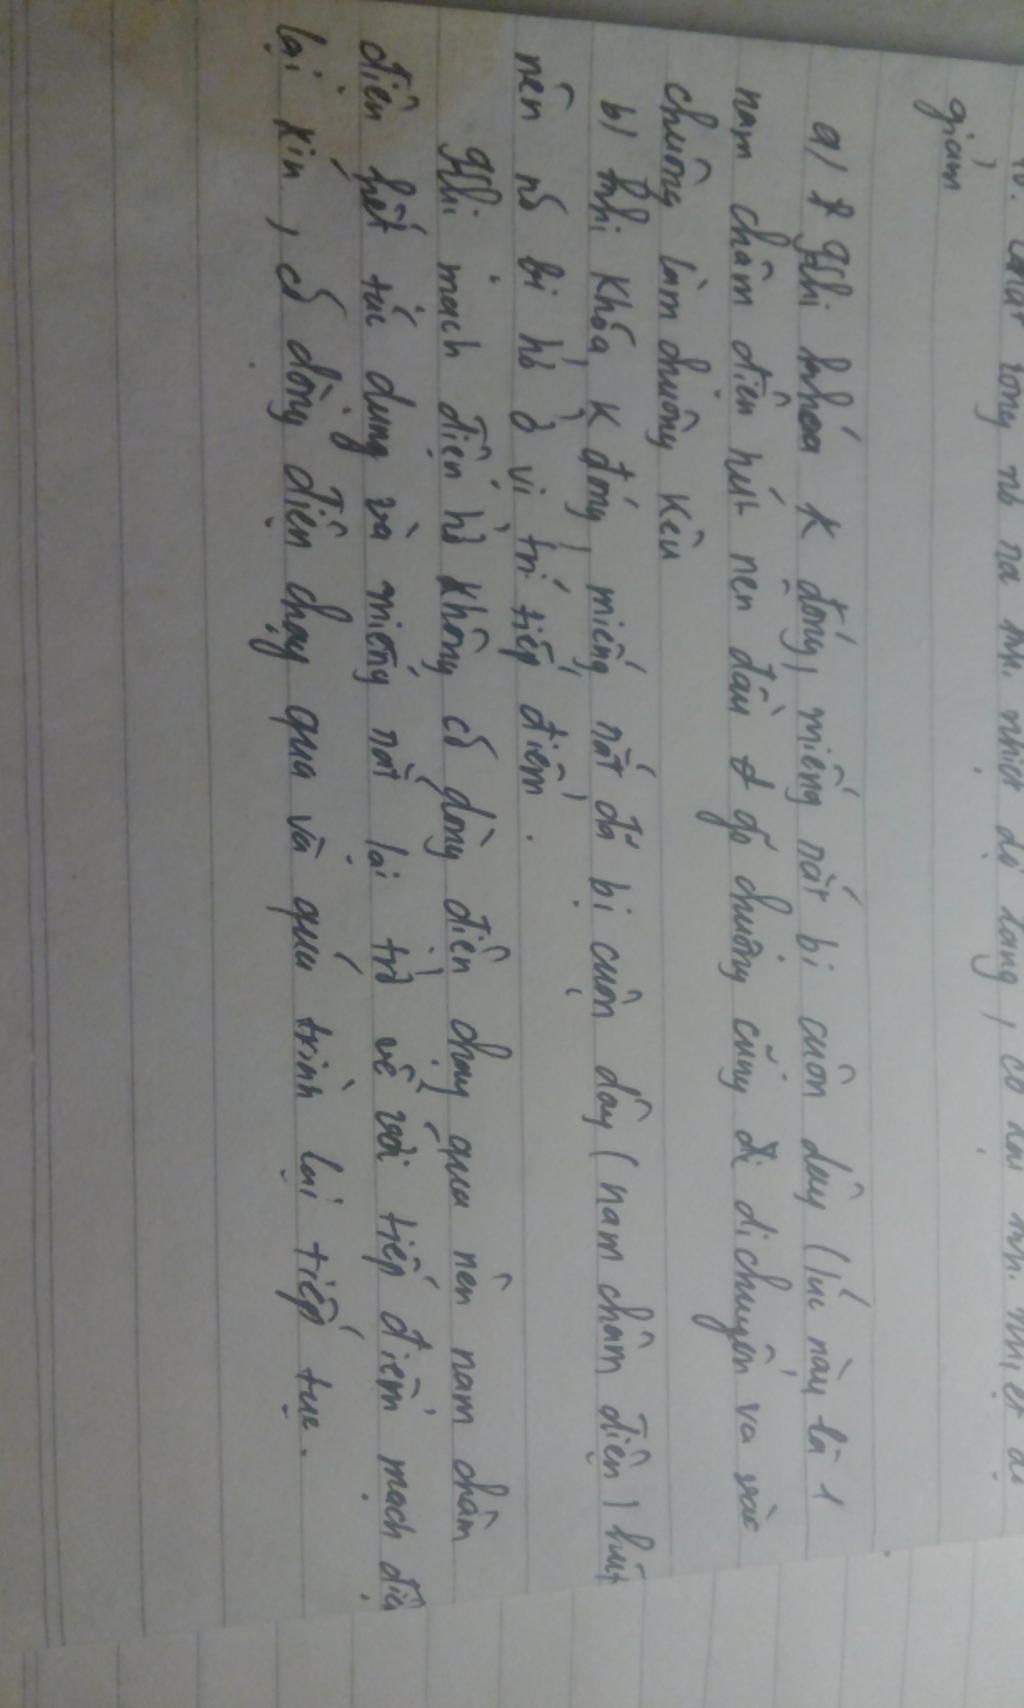 lỏng nở ra
giảm
a) Khi khóa K đóng, miếng sắt bị cuộn dây (lúc này là 1
nam châm điện hút nên đầu gõ chuông cũng di chuyển va vào
chuông làm chuông kêu
b) Khi khóa K đóng, miếng sắt đã bị cuộn dây (nam châm điện) hút
nên nó bị hở ở vị trí tiếp điểm.
Khi mạch điện hở không có dòng điện chạy qua nên nam châm
điện hết tác dụng và miếng sắt lại trở về với tiếp điểm mạch điện
lại kín, có dòng điện chạy qua và quá trình lại tiếp tục.